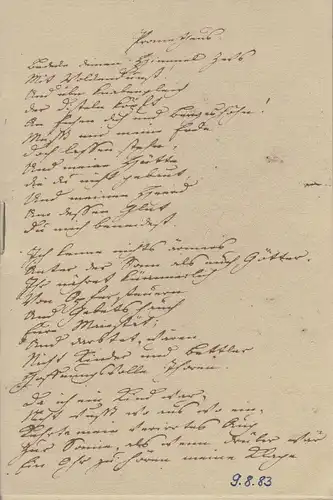 Prometheus.
Bedecke deinen Himmel Zevs
Mit Wolkendunst!
Und übe Knabengleich
der Disteln köpft
An Eichen dich und Bergeshöhn!
Mußt mir meine Erde
doch lassen stehn,
Und meine Hütte
die du nicht gebaut,
Und meinen Heerd
Um dessen Glut
Du mich beneidest.
Ich kenne nichts ärmers
Unter der Sonn als euch Götter.
Ihr nähret kümmerlich
Von Opfersteuern
Und Gebetshauch
Eure Majestät,
Und darbtet, wären
Nicht Kinder und Bettler
Hoffnungsvolle Thoren.
Da ich ein Kind war,
Nicht wußt wo aus wo ein,
Kehrte mein verirrtes Aug
Zur Sonne, als wenn drüber wär
Ein Ohr zu hören meine Klage
9.8.83